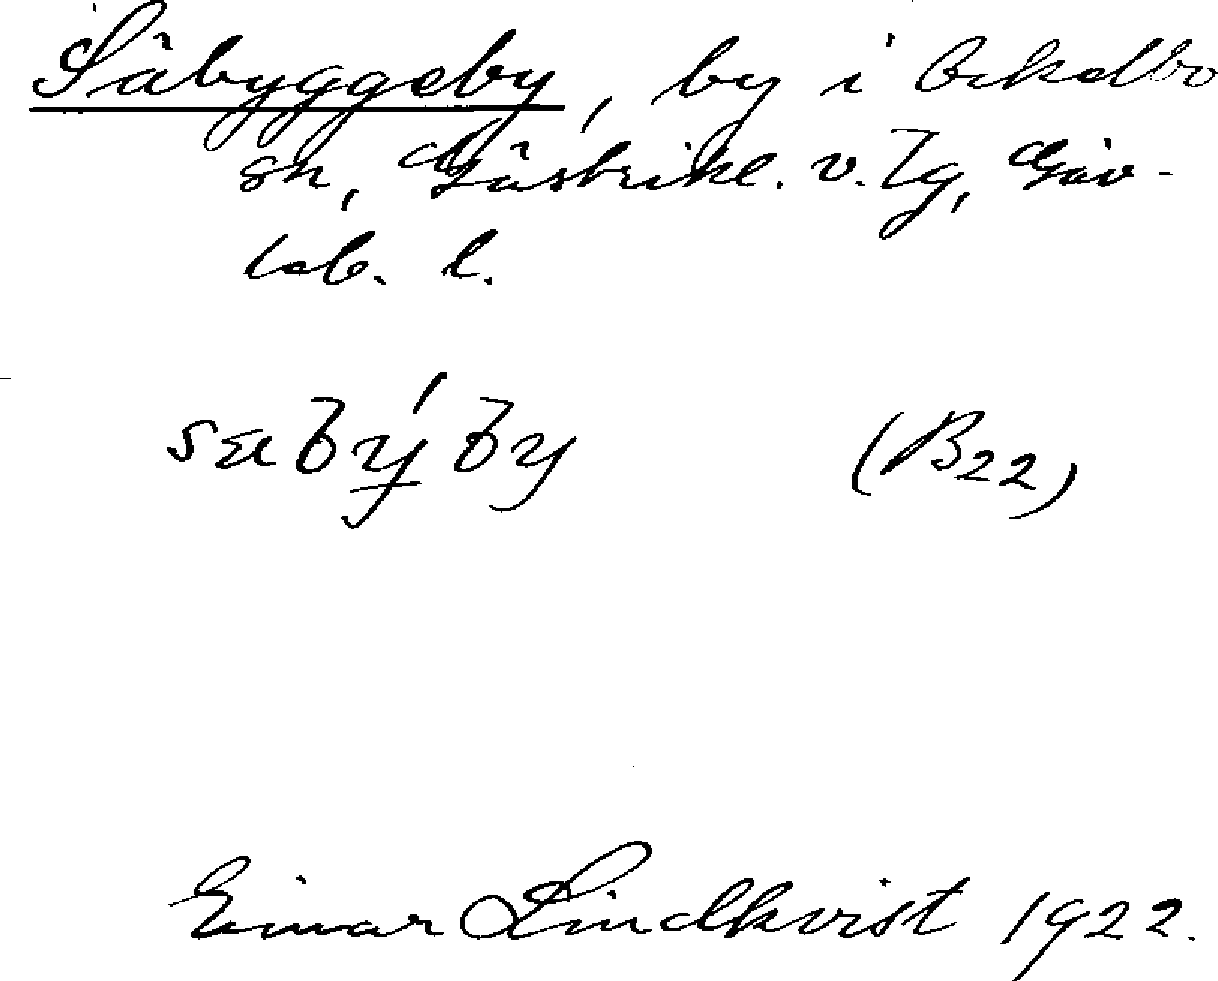 Säbyggeby, by i Ockelbo
sn, Gästrikl. v. Tg, Gäv-
leb. l.
(B22)
Einar Lindkvist 1922.